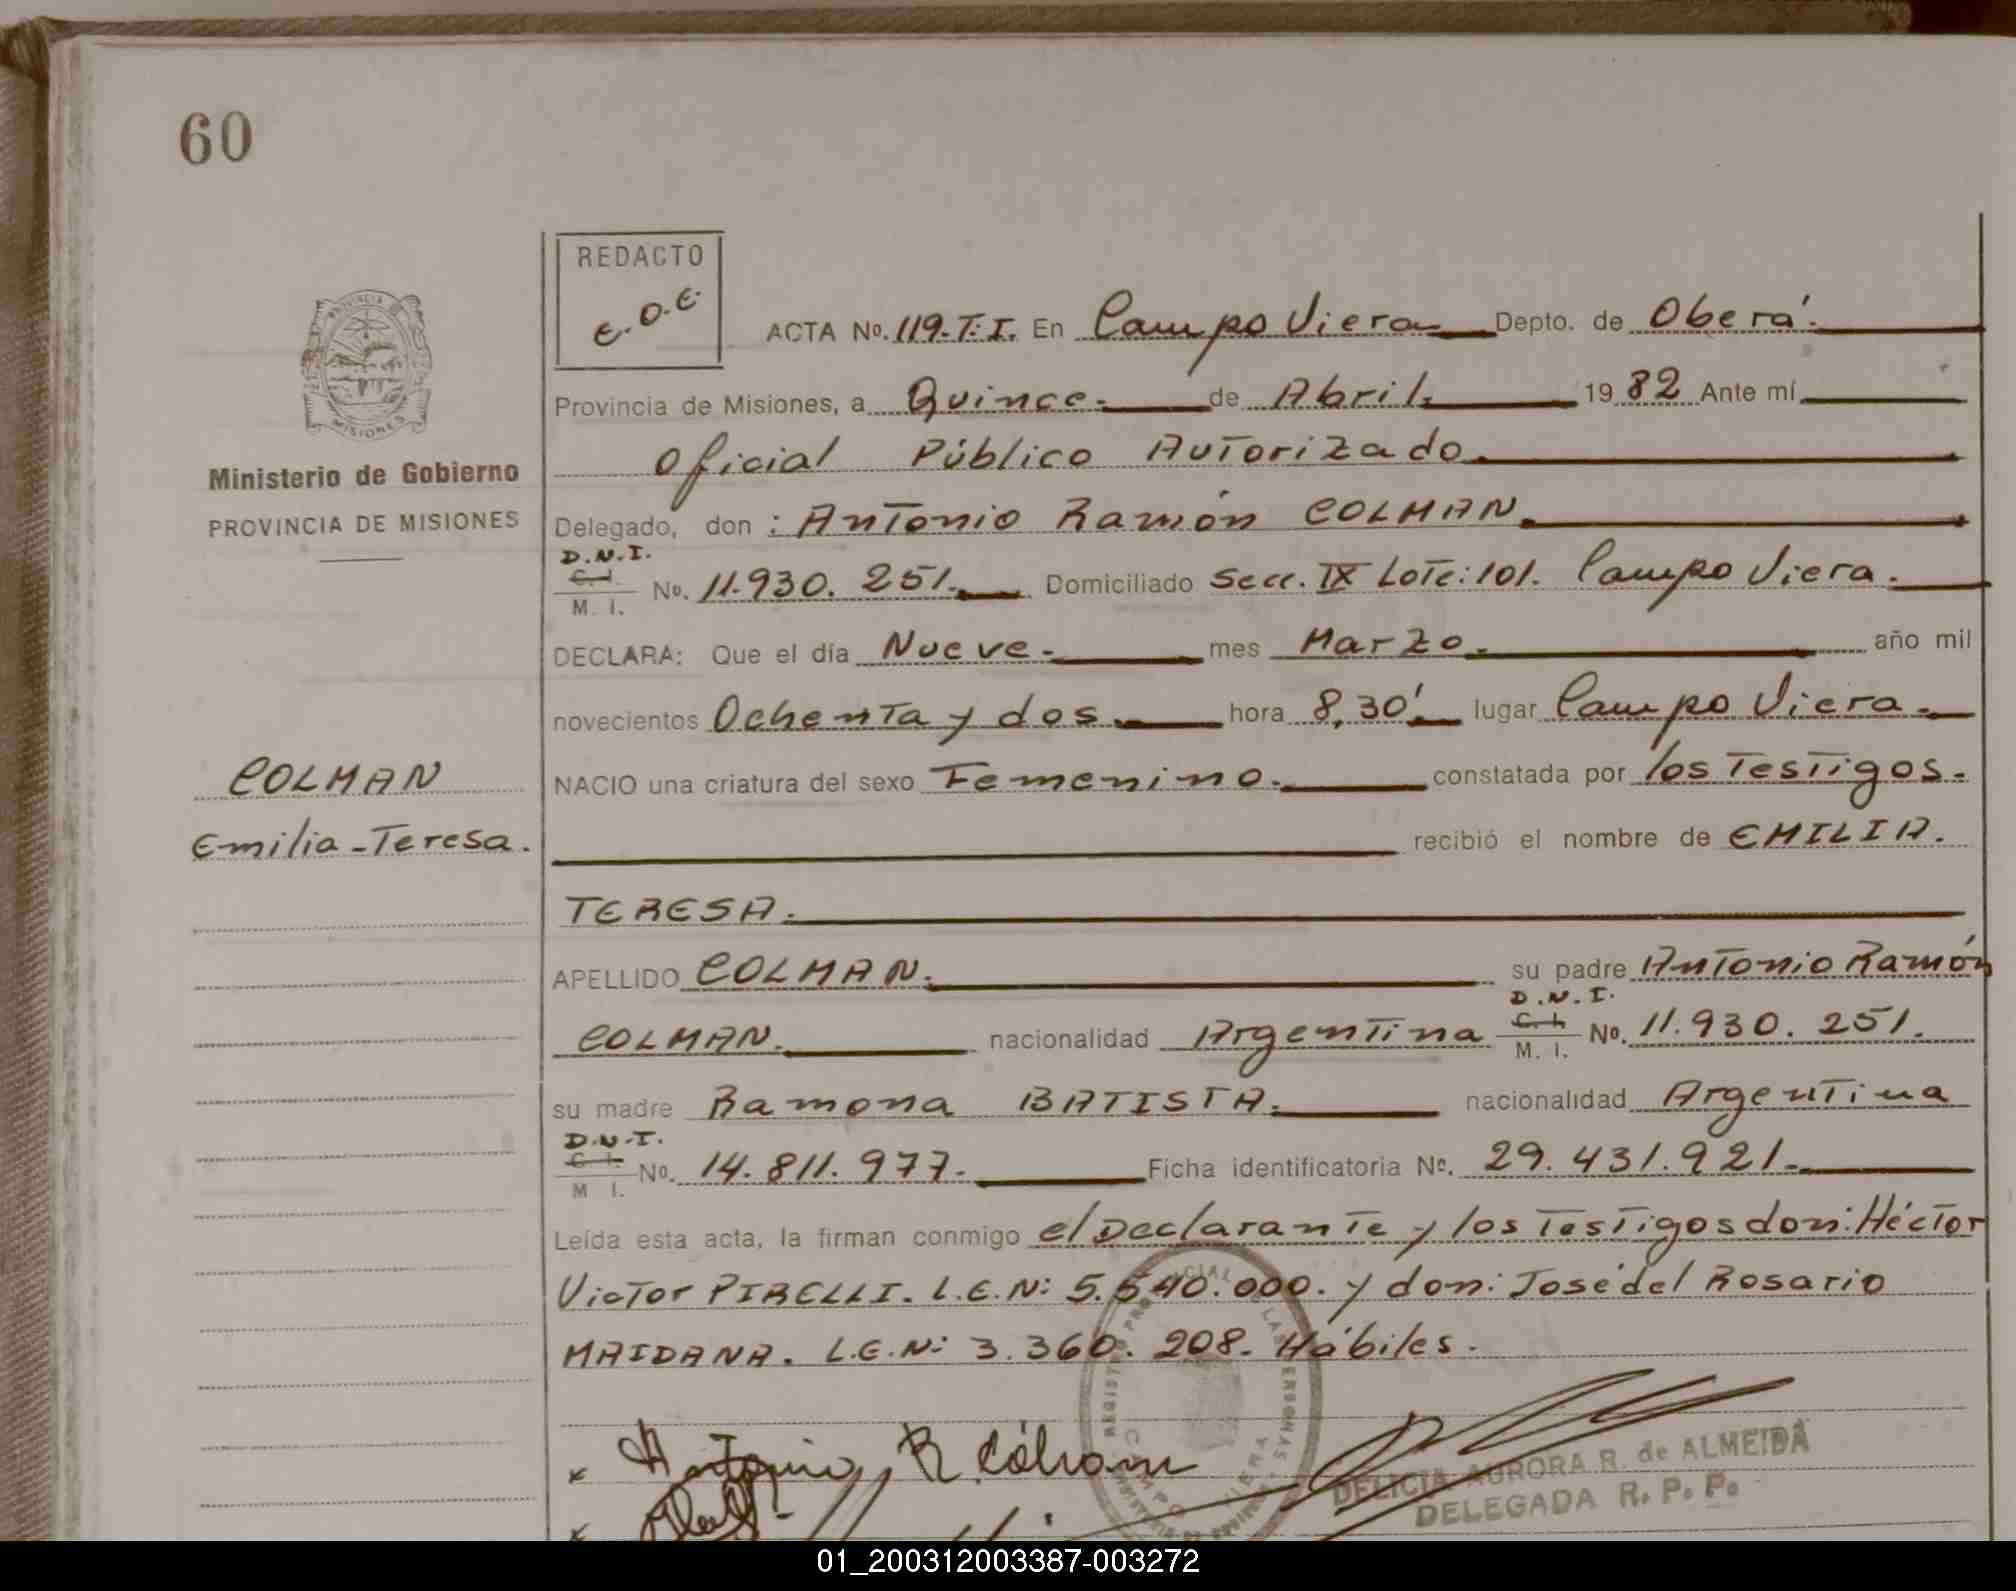 60
REDACTO
E.O.E
PROVINCIA DE
MISIONES
ACTA No. 119-T:I. En Campo Viera Depto. de Oberá.
Provincia de Misiones, a Quince. de Abril. 1982 Ante mí
Oficial Público Autorizado.
Ministerio de Gobierno
PROVINCIA DE MISIONES
Delegado, don : Antonio Ramón COLMAN.
D.N.I.
C. I.
M. I. No. 11.930.251. Domiciliado Secc. IX Lote: 101. Campo Viera.
DECLARA: Que el día Nueve. mes Marzo. año mil
novecientos Ochenta y dos. hora 8,30'. lugar Campo Viera.
COLMAN
Emilia-Teresa.
NACIO una criatura del sexo Femenino. constatada por los Testigos.
recibió el nombre de EMILIA.
TERESA.
APELLIDO COLMAN. su padre Antonio Ramón
D.N.I.
C. I.
COLMAN. nacionalidad Argentina M. I. No. 11.930.251.
su madre Ramona BATISTA. nacionalidad Argentina
D.N.I.
C. I.
M I. No. 14.811.977. Ficha identificatoria No. 29.431.921.
Leída esta acta, la firman conmigo el Declarante y los Testigos don: Héctor
Victor PIRELLI. L.E.N: 5.540.000. y don: José del Rosario
MAIDANA. L.E.N: 3.360.208. Hábiles.
x Antonio R. Cólman
x
DELICIA AURORA R. de ALMEIDA
DELEGADA R. P. P.
01_200312003387-003272